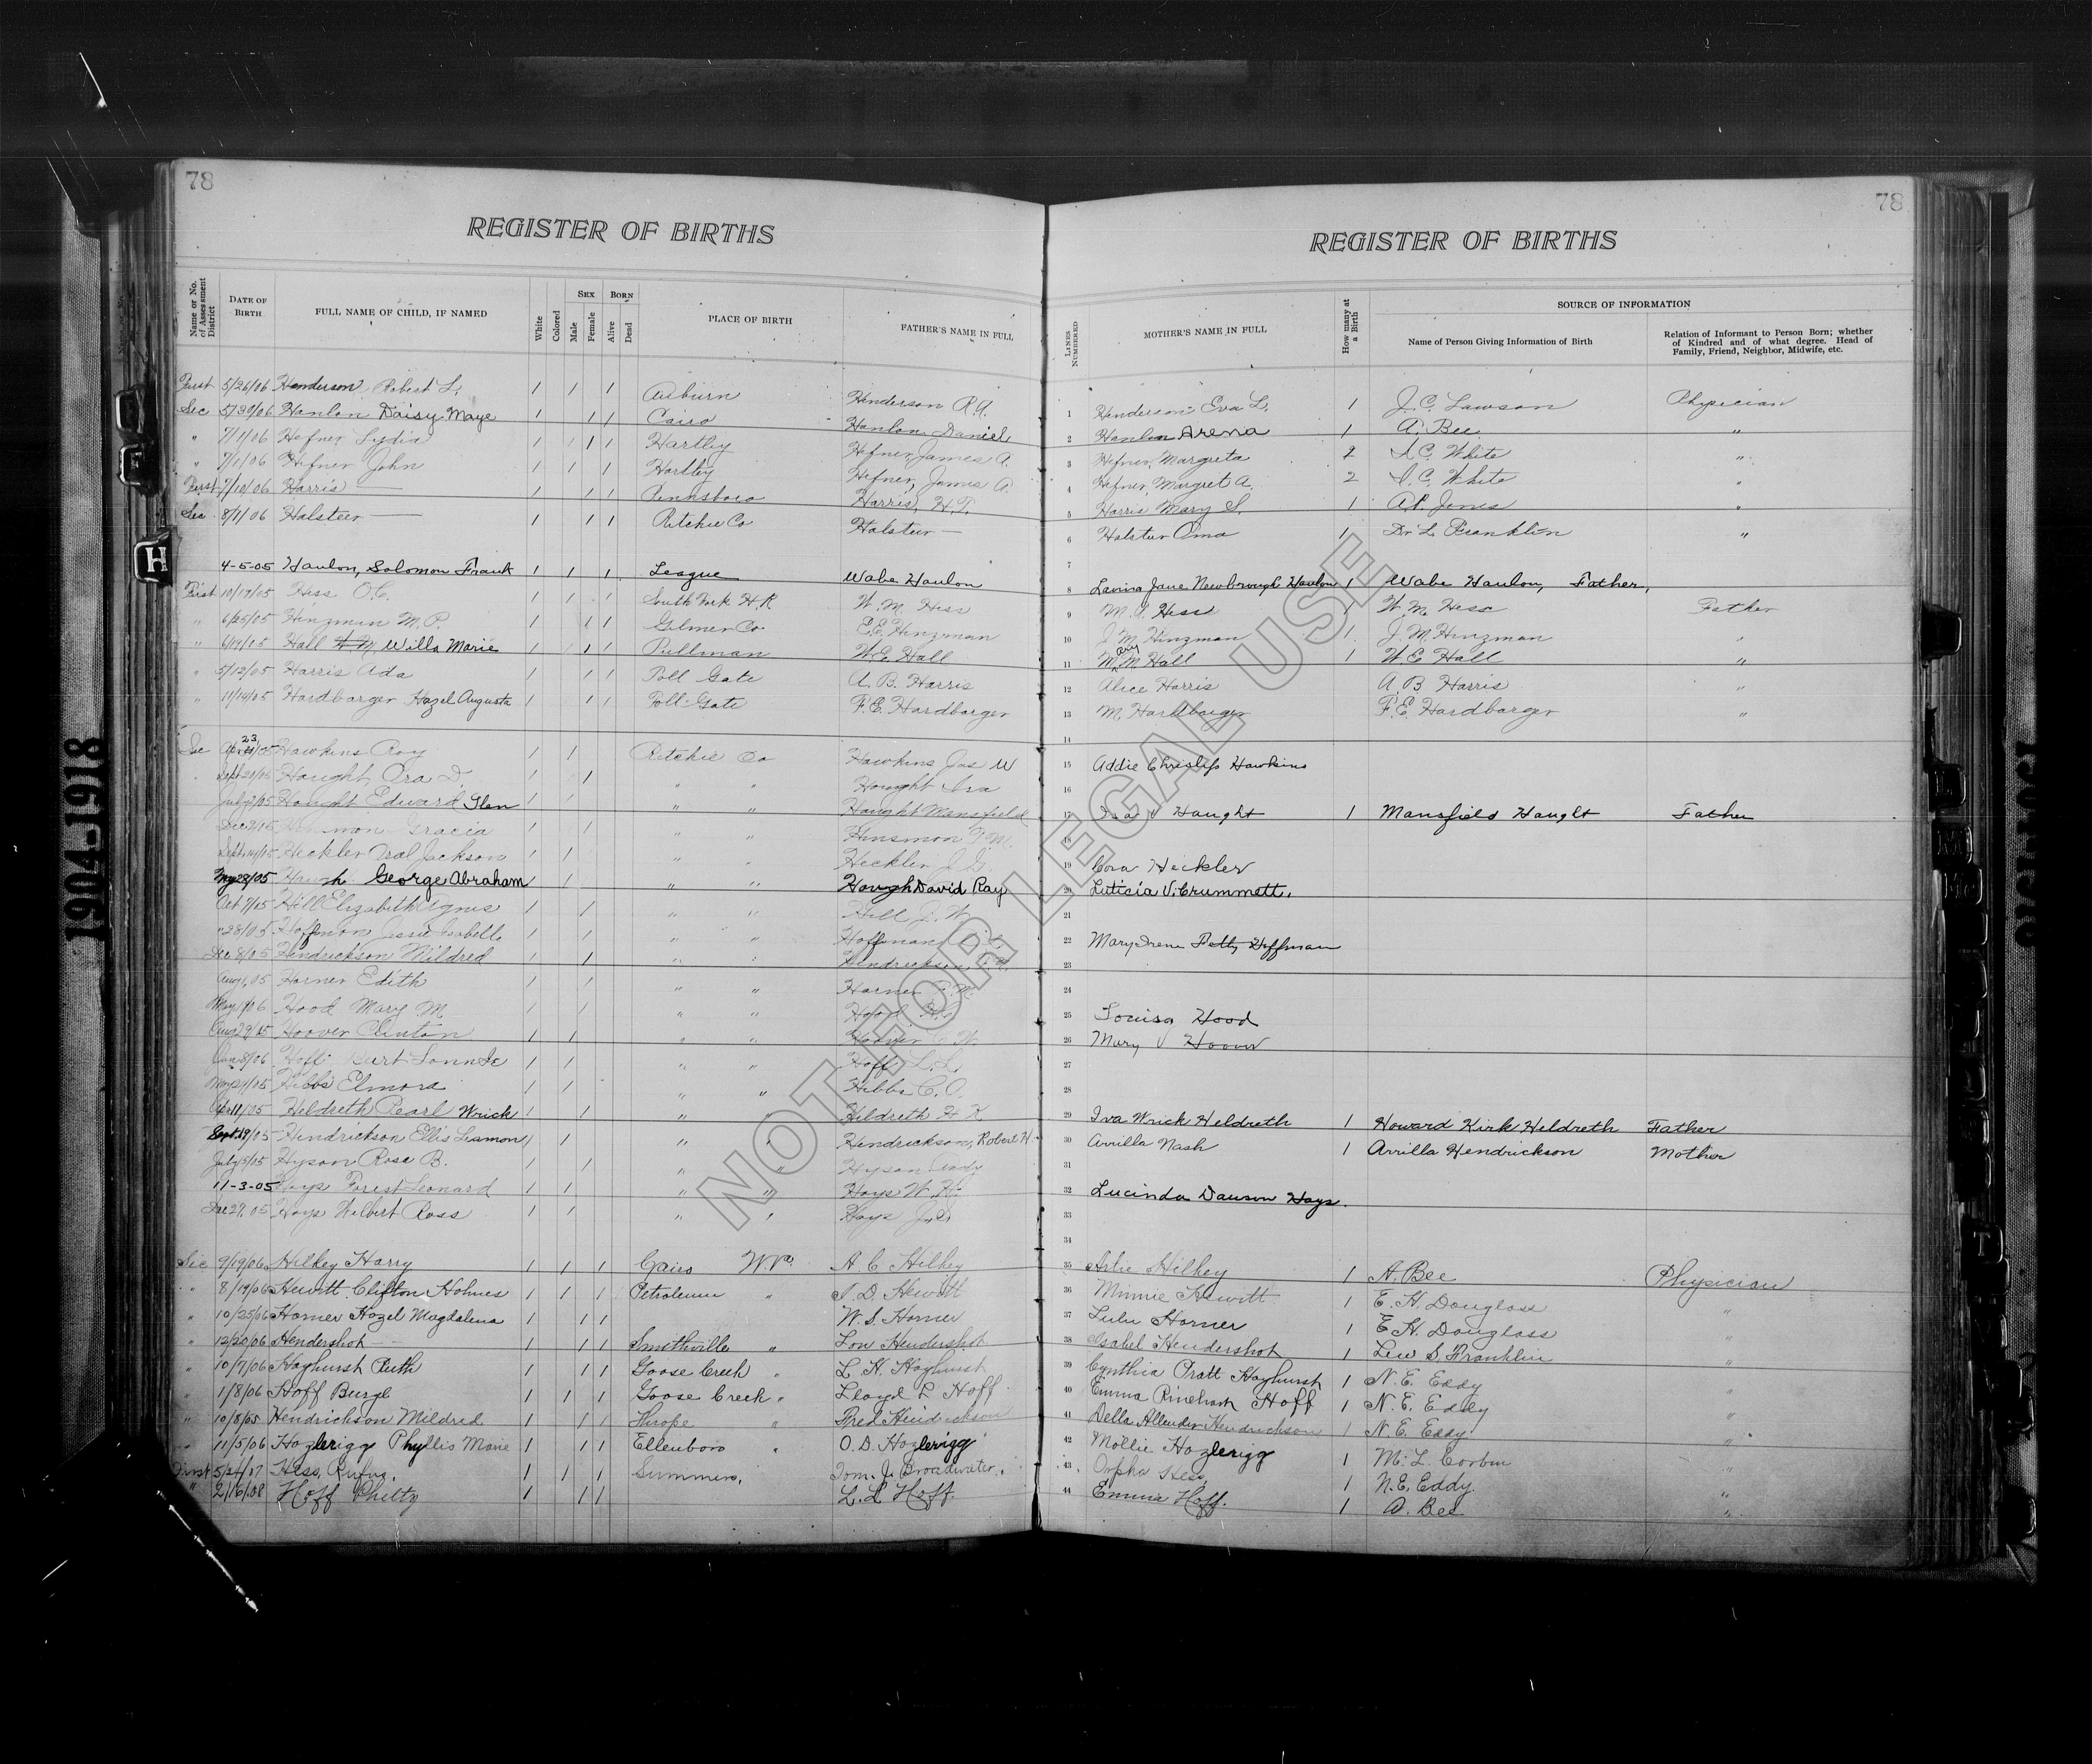 78
REGISTER OF BIRTHS
Name or No. of Assessment District
DATE OF BIRTH
FULL NAME OF CHILD, IF NAMED
White
Colored
SEX
Male
Female
BORN
Alive
Dead
PLACE OF BIRTH
FATHER'S NAME IN FULL
First 5/26/06 Henderson Robert L. 1 1 1 Auburn Henderson R.A.
Sec 5/30/06 Hanlon Daisy Maye 1 1 1 Cairo Hanlon Daniel
" 7/1/06 Hefner Lydia 1 1 1 Hartley Hefner, James A.
" 7/1/06 Hefner John 1 1 1 Hartley Hefner, James A.
First 7/10/06 Harris — 1 1 1 Pennsboro Harris, H.T.
Sec 8/1/06 Halsteer — 1 1 1 Ritchie Co Halsteer —
4-5-05 Hanlon, Solomon Frank 1 1 1 League Wabe Hanlon
First 10/17/05 Hess O.C. 1 1 1 South Fork H.R W. M. Hess
" 6/25/05 Hinzman M. P. 1 1 1 Gilmer Co E.E. Hinzman
" 6/19/05 Hall Willa Marie 1 1 1 Pullman W.E. Hall
" 5/12/05 Harris Ada 1 1 1 Toll Gate A. B. Harris
" 11/14/05 Hardbarger Hazel Augusta 1 1 1 Toll Gate F.E. Hardbarger
Sec Apr 23/05 Hawkins Roy 1 1 Ritchie Co Hawkins Jas W
Sept 20/05 Haught Ora D. 1 1 " " Haught Ira
July 2/05 Haught Edward Glen 1 1 " " Haught Mansfield
Gracia 1 1 " " Hinsmon
Sept 14/05 Heckler Oral Jackson 1 1 " " Heckler J. G.
May 28/05 Haugh George Abraham 1 1 " " Hough David Ray
Oct 7/05 Hill Elizabeth Agnes 1 1 " " Hill J. W.
" 28/05 Hoffman Jessie Isabell 1 1 " " Hoffman
Dec 8/05 Hendrickson Mildred 1 1 " " Hendrickson
Aug 1, 05 Harner Edith 1 1 " " Harner
May 1/06 Hood Mary M 1 1 " " Hood
Aug 29/05 Hoover Clinton 1 1 " " Hoover C W
Jan 8/06 Hoff Burt 1 1 " " Hoff L. L.
May 24/05 Hibbs Elmora 1 1 " " Hibbs C. O.
Apr 11/05 Heldreth Pearl Wrick 1 1 " " Heldreth H K
Sept 19/05 Hendrickson Ellis Leamon 1 1 " " Hendrickson, Robert H.
July 5/05 Hyson Rosa B. 1 1 " " Hyson
11-3-05 Hays Forest Leonard 1 1 " " Hays W. H.
Dec 27, 05 Hays Welbert Ross 1 1 " " Hays
Sec 9/19/06 Hilkey Harry 1 1 1 Cairo W.Va. A. C Hilkey
" 8/19/06 Hewitt Clifton Holmes 1 1 1 Petroleum " Hewitt
" 10/25/06 Horner Hazel Magdalena 1 1 1 W. S. Horner
" 12/20/06 Hendershot 1 1 1 Smithville " Lon Hendershot
" 10/7/06 Hayhurst Ruth 1 1 1 Goose Creek " L. H. Hayhurst
" 1/8/06 Hoff Burgl 1 1 1 Goose Creek " Lloyd L Hoff
" 10/8/05 Hendrickson Mildred 1 1 1 Thrope " Fred Hendrickson
" 11/5/06 Hazlerigg Phyllis Marie 1 1 1 Ellenboro " O. D. Hazlerigg
First 5/24/07 Hess, Rufus, 1 1 1 Summers, Tom. J. Broadwater.
" 2/16/08 Hoff Chitty 1 1 1 L. L Hoff.
78
REGISTER OF BIRTHS
LINES NUMBERED
MOTHER'S NAME IN FULL
How many at a Birth
SOURCE OF INFORMATION
Name of Person Giving Information of Birth
Relation of Informant to Person Born; whether of Kindred and of what degree. Head of Family, Friend, Neighbor, Midwife, etc.
1 Henderson Eva L. 1 J. C. Lawson Physician
2 Hanlon Arena 1 A. Bee "
3 Hefner, Margreta 2 I. C. White "
4 Hefner, Margret A. 2 I. C. White "
5 Harris Mary S. 1 A.P. Jones "
6 Halsteer Oma 1 Dr L. Franklin "
7
8 Lavina Jane Newbrough Hanlon 1 Wabe Hanlon, Father,
9 M. A. Hess 1 W. M. Hess Father
10 J M Hinzman 1 J. M. Hinzman "
11 Mary M Hall 1 W E Hall "
12 Alice Harris A. B Harris "
13 M. Hardbarger F. E. Hardbarger "
14
15 Addie Chreslip Hawkins
16
17 Haught 1 Mansfield Haught Father
18
19 Cora Heckler
20 Luticia V. Crummett.
21
22 Mary Irene Petty Hoffman
23
24
25 Louisa Hood
26 Mary Hoover
27
28
29 Iva Wrick Heldreth 1 Howard Kirk Heldreth Father
30 Arrilla Nash 1 Arrilla Hendrickson Mother
31
32 Lucinda Dawson Hays.
33
34
35 Hilkey 1 A. Bee Physician
36 Minnie Hewitt 1 E. H. Douglass "
37 Lulu Horner 1 E H. Douglass "
38 Isabel Hendershot 1 Lew S. Franklin "
39 Cynthia Pratt Hayhurst 1 N. E. Eddy
40 Emma Rinehart Hoff 1 N. E. Eddy "
41 Della Allender Hendrickson 1 N. E. Eddy "
42 Mollie Hazlerigg 1 M. L. Corbin "
43 Orpha Hess 1 N. E. Eddy. "
44 Emma Hoff. 1 A. Bee "
NOT FOR LEGAL USE
1904-1918
F
H
1904-1918
E
M
Mc
T